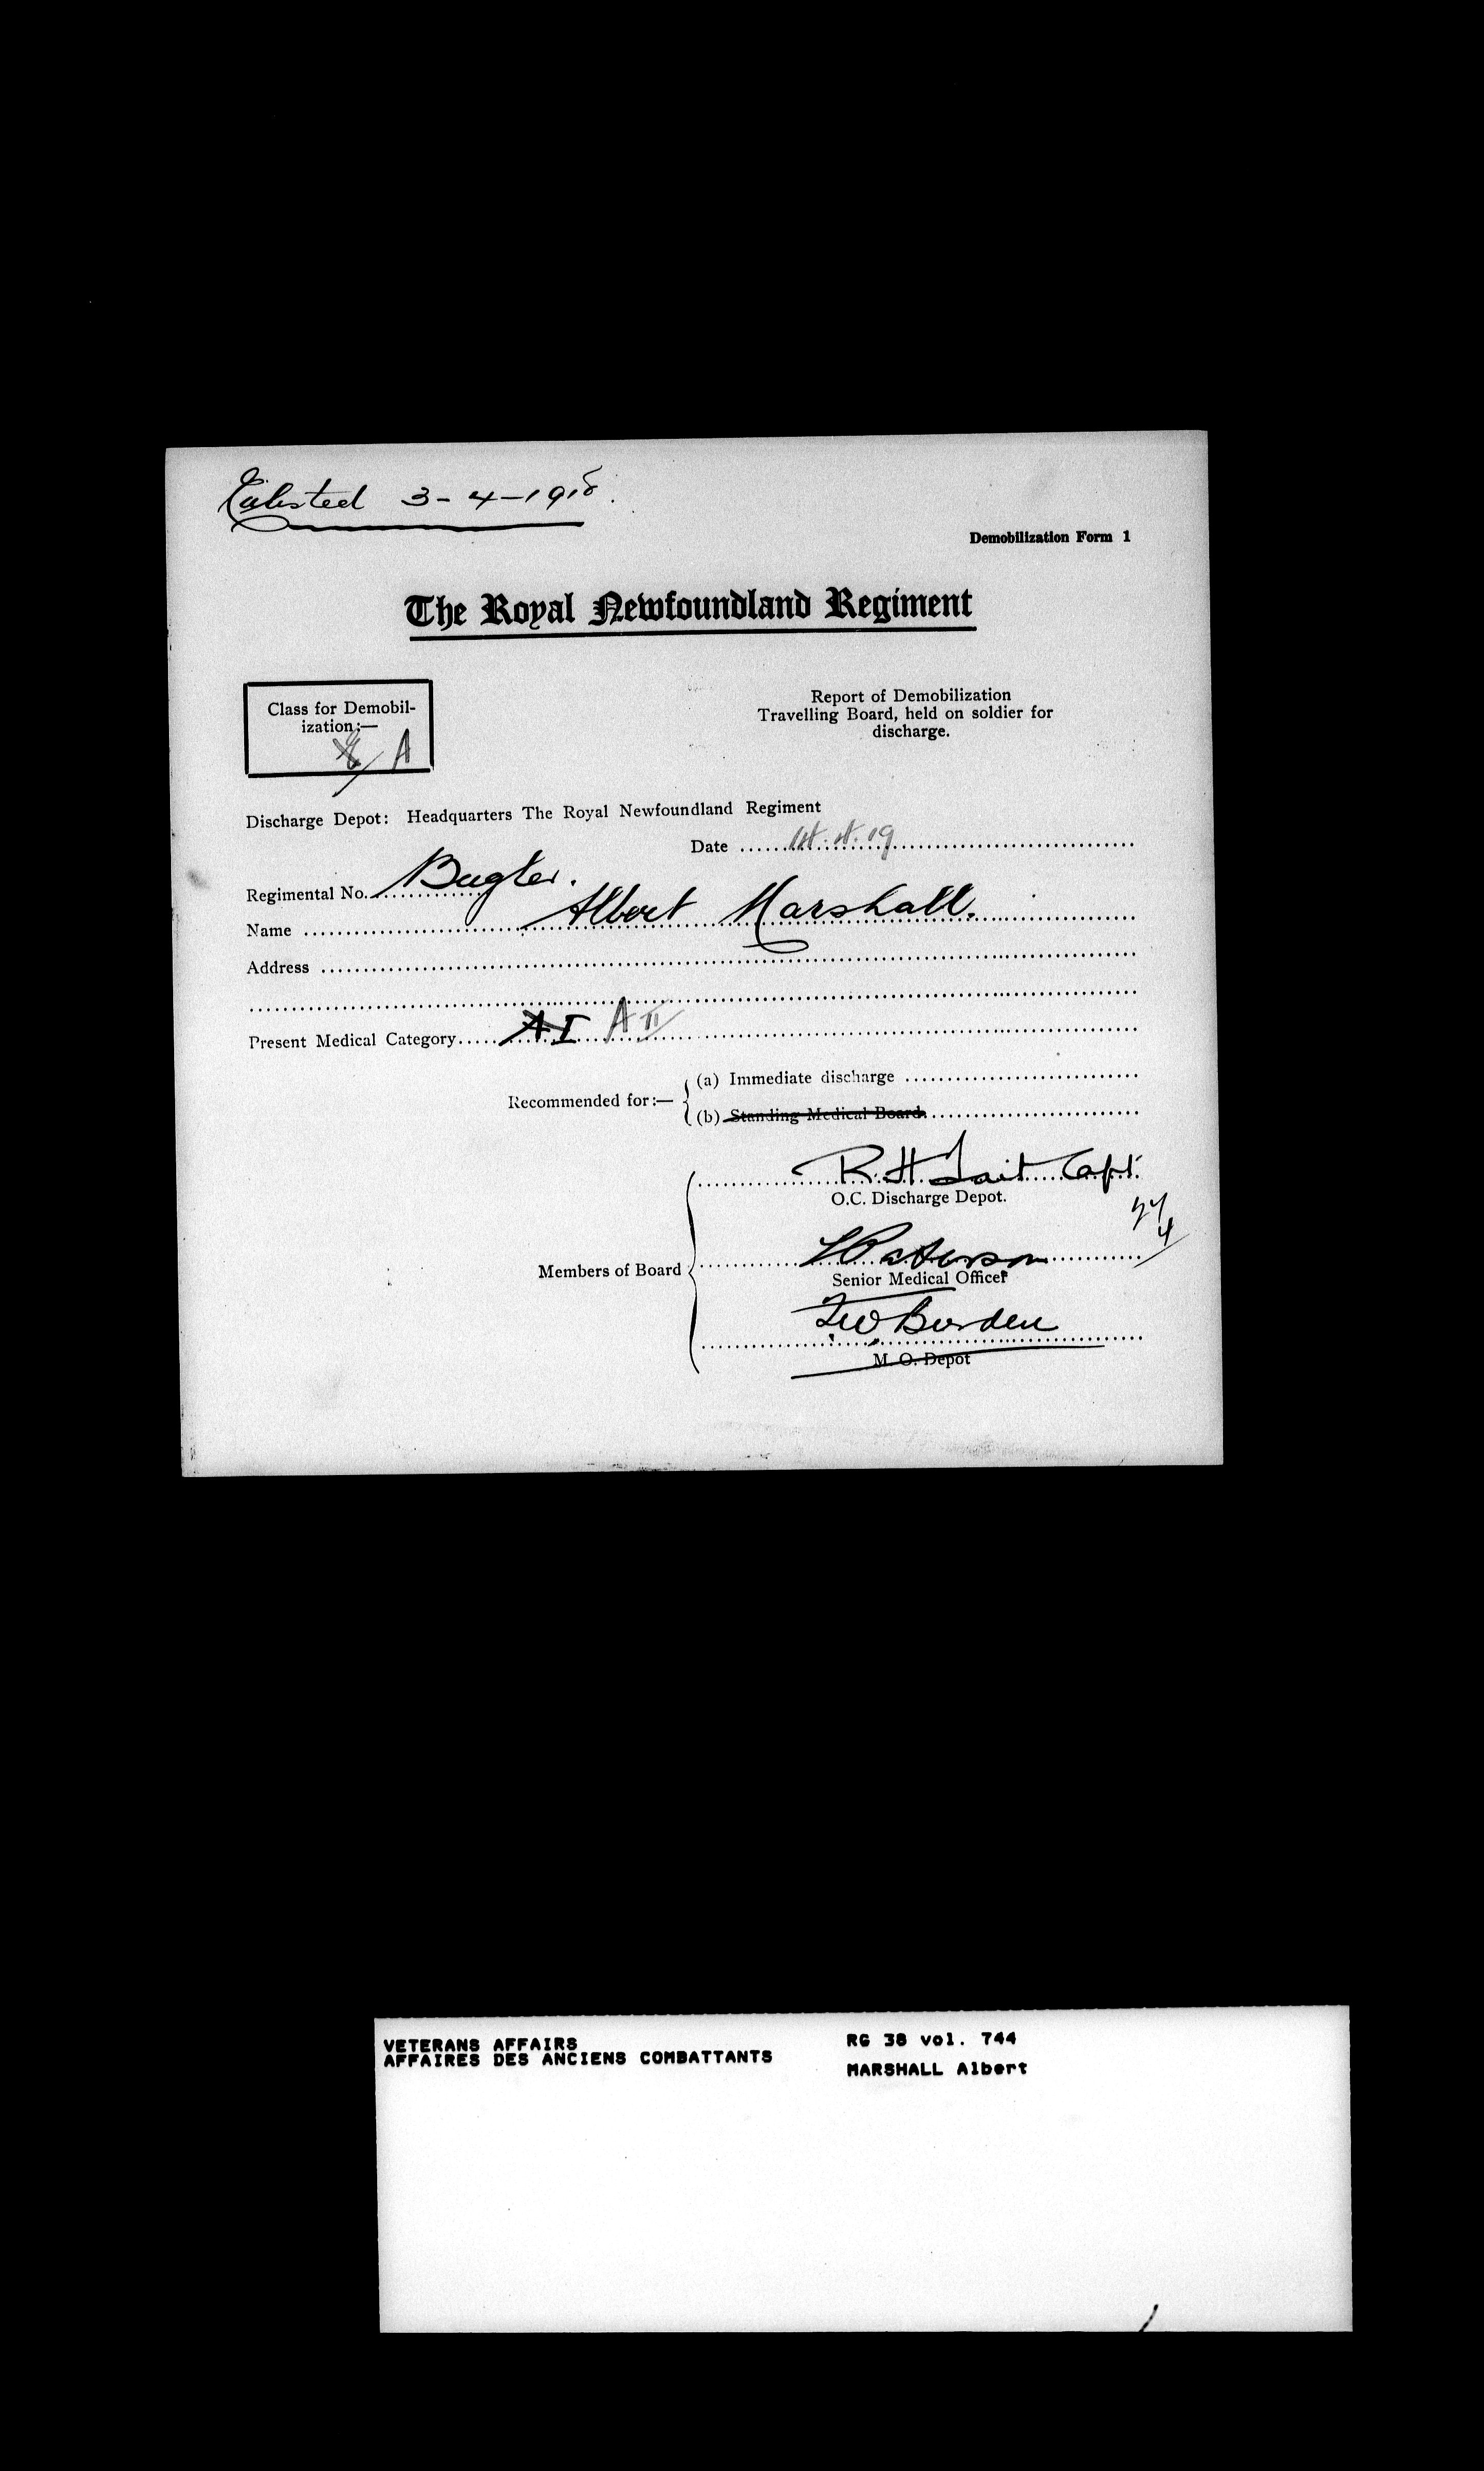 Enlisted 3-4-1918.
Demobilization Form 1
The Royal Newfoundland Regiment
Class for Demobil-
ization:—
A
Report of Demobilization
Travelling Board, held on soldier for
discharge.
Discharge Depot: Headquarters The Royal Newfoundland Regiment
Date 14.4.19
Regimental No. Bugler.
Name Albert Marshall.
Address
Present Medical Category AI AII
Recommended for:—
(a) Immediate discharge
(b) Standing Medical Board
R.H. Tait Capt.
O.C. Discharge Depot.
Members of Board
Paterson
Senior Medical Officer
Burden
M. O. Depot
VETERANS AFFAIRS
AFFAIRES DES ANCIENS COMBATTANTS
RG 38 vol. 744
MARSHALL Albert